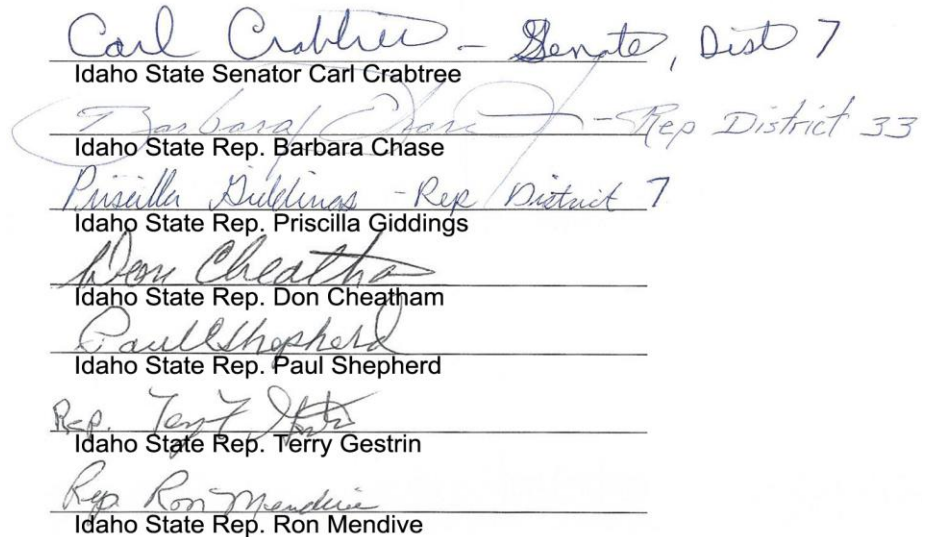 Carl Crabtree - Senate, Dist 7
Idaho State Senator Carl Crabtree
Barbara Chase - Rep District 33
Idaho State Rep. Barbara Chase
Priscilla Giddings - Rep District 7
Idaho State Rep. Priscilla Giddings
Don Cheatham
Idaho State Rep. Don Cheatham
Paul Shepherd
Idaho State Rep. Paul Shepherd
Rep. Terry F Gestrin
Idaho State Rep. Terry Gestrin
Rep Ron Mendive
Idaho State Rep. Ron Mendive